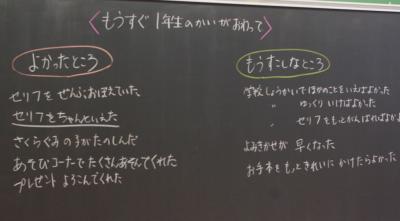 〈もうすぐ1年生のかいがおわって〉
よかったところ
セリフをぜんぶおぼえていた
セリフをちゃんといえた
さくらぐみの子がたのしんだ
あそびコーナーでたくさんあそんでくれた
プレゼントよろこんでくれた
もうすこしなところ
学校しょうかいでほかのことをいえばよかった
〃 ゆっくりいけばよかった
〃 セリフをもっとがんばればよかった
よみきかせが早くなった
お手本をもっときれいにかけたらよかった